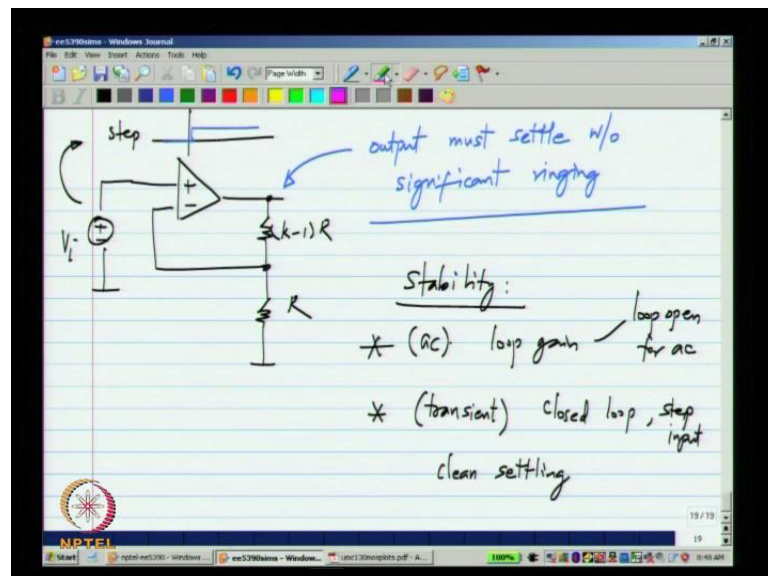 ee5390sims - Windows Journal
File Edit View Insert Actions Tools Help
Page Width
B I
step
output must settle w/o
significant ringing
+
-
Vi
+
-
(k-1)R
R
Stability:
* (ac) loop gain
loop open
for ac
* (transient) closed loop, step
input
clean settling
19/19
19
NPTEL
Start
nptel-ee5390 - Windows ...
ee5390sims - Window...
umc130mosplots.pdf - A...
100%
8:48 AM